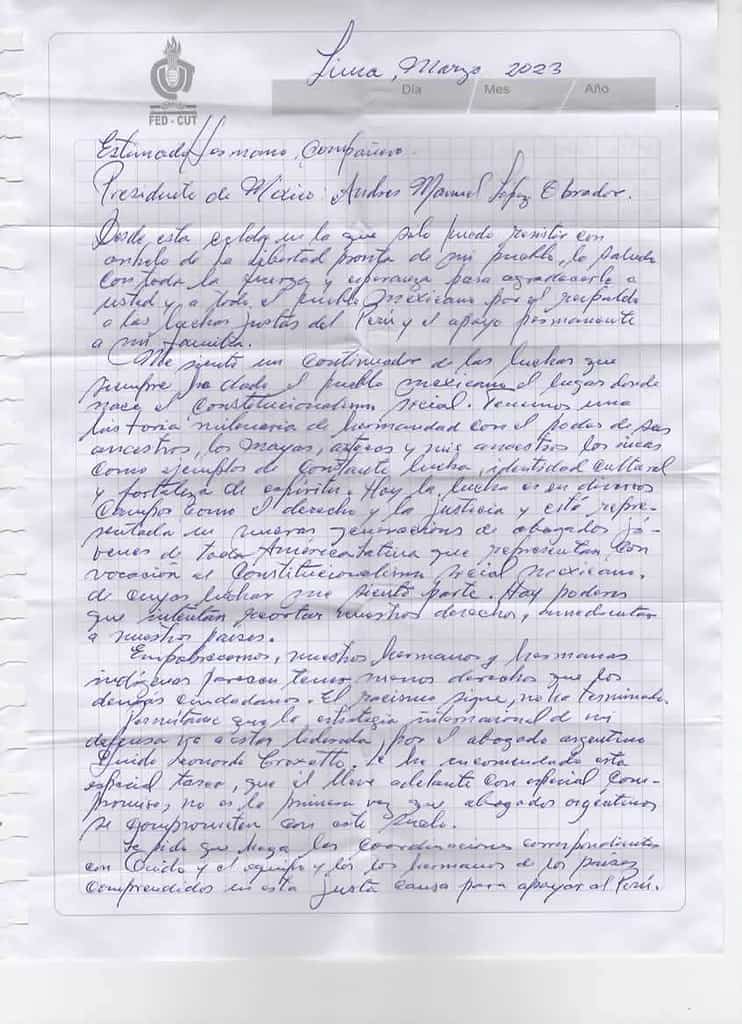 Lima, Marzo 2023
Día / Mes / Año
FED - CUT
Estimado Hermano, Compañero
Presidente de México: Andres Manuel López Obrador.
Desde esta celda en la que solo puedo resistir con
anhelo de la libertad pronta de mi pueblo, lo saludo
con toda la fuerza y esperanza para agradecerle a
usted y a todo el pueblo mexicano por el respaldo
a las luchas justas del Perú y el apoyo permanente
a mi familia.
Me siento un continuador de las luchas que
siempre ha dado el pueblo mexicano, el lugar donde
nace el Constitucionalismo social. Tenemos una
historia milenaria de hermandad con el poder de sus
ancestros, los mayas, aztecas y mis ancestros los incas
como ejemplos de constante lucha, identidad cultural
y fortaleza de espíritu. Hoy la lucha es en diversos
campos como el derecho y la justicia y está repre-
sentada en nuevas generaciones de abogados jó-
venes de toda América Latina que representan con
vocación el Constitucionalismo social mexicano,
de cuyas luchas me siento parte. Hay poderes
que intentan recortar nuestros derechos,
a nuestros países.
Empobrecernos, nuestros hermanos y hermanas
indígenas parecen tener menos derechos que los
demás ciudadanos. El racismo sigue, no ha terminado.
Permítame que la estrategia internacional de mi
defensa va a estar liderada, por el abogado argentino
Guido Leonardo Croxatto. Le he encomendado esta
especial tarea, que él lleve adelante con especial Com-
promiso, no es la primera vez que abogados argentinos
se comprometen con este suelo.
Le pido que haga las coordinaciones correspondientes
con Guido y el equipo y los hermanos de los países
comprendidos en esta justa causa para apoyar al Perú.